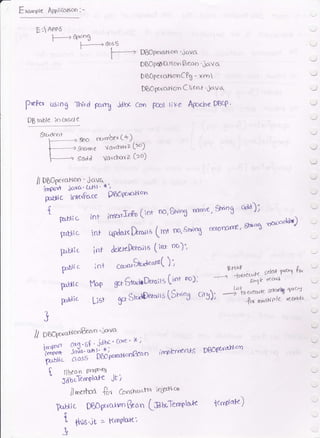 Example Application :-
E:\Apps
Spring
DBOperation.java
DBOperationBean.java
DBOperationCfg.xml
DBOperationClient.java
Prefer using Third party jdbc con pool like Apache DBCP.
DB table in oracle
Student
sno number(4)
sname varchar2(20)
sadd varchar2(20)
// DBOperation.java
import java.util.*;
public interface DBOperation
{
public int insertInfo(int no, String name, String add);
public int updateDetails (int no, String newname, String newadd)
public int deleteDetails (int no);
public int countStudents();
public Map getStudDetails(int no);
to execute select query for single record
public List getStudDetails(String city);
List
to execute select query for multiple records
}
// DBOperationBean.java
import org.sf.jdbc.core.*;
import java.util.*;
public class DBOperationBean implements DBOperation
{
//Bean property
JdbcTemplate jt;
//method for constructor injection
public DBOperationBean (JdbcTemplate template)
{
this.jt = template;
}